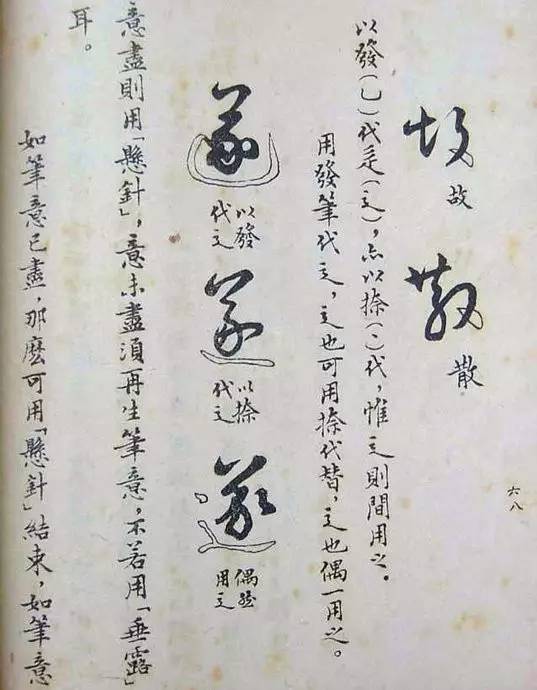 六八
故 故 散 散
以發(乁)代辵(辶),亦以捺(㇏)代,惟辶則間用之。
用發筆代辶,辶也可用捺代替,辶也偶一用之。
遂 以發代辶 遂 以捺代辶 遂 偶然用辶
意盡則用「懸針」,意未盡須再生筆意,不若用「垂露」
耳。
如筆意已盡,那麽可用「懸針」結束,如筆意